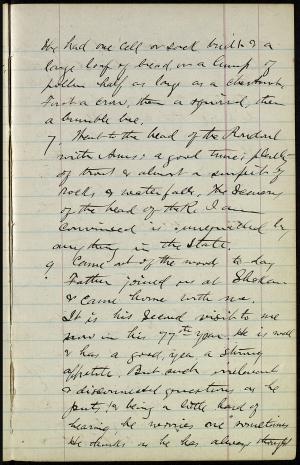 He had one cell or sack built & a
large loaf of bread, or a lump of
pollen half as large as a chestnut.
First a crow, then a squirrel, then
a bumble bee.
7. Went to the head of the Rondout
with Aaron; a good time; plenty
of trout & almost a surfeit of
rocks & waterfalls. The scenery
of the head of the R. I am
convinced is unequalled by
anything in the State.
9 Came out of the woods to day
Father joined us at Shokan
& came home with me.
It is his second visit to me
now in his 77th year. He is well
& has a good, yea, a strong
appetite. But such irrelevant
& disconnected questions as he
puts, & being a little hard of
hearing he worries one sometimes
He thinks as he has always thought